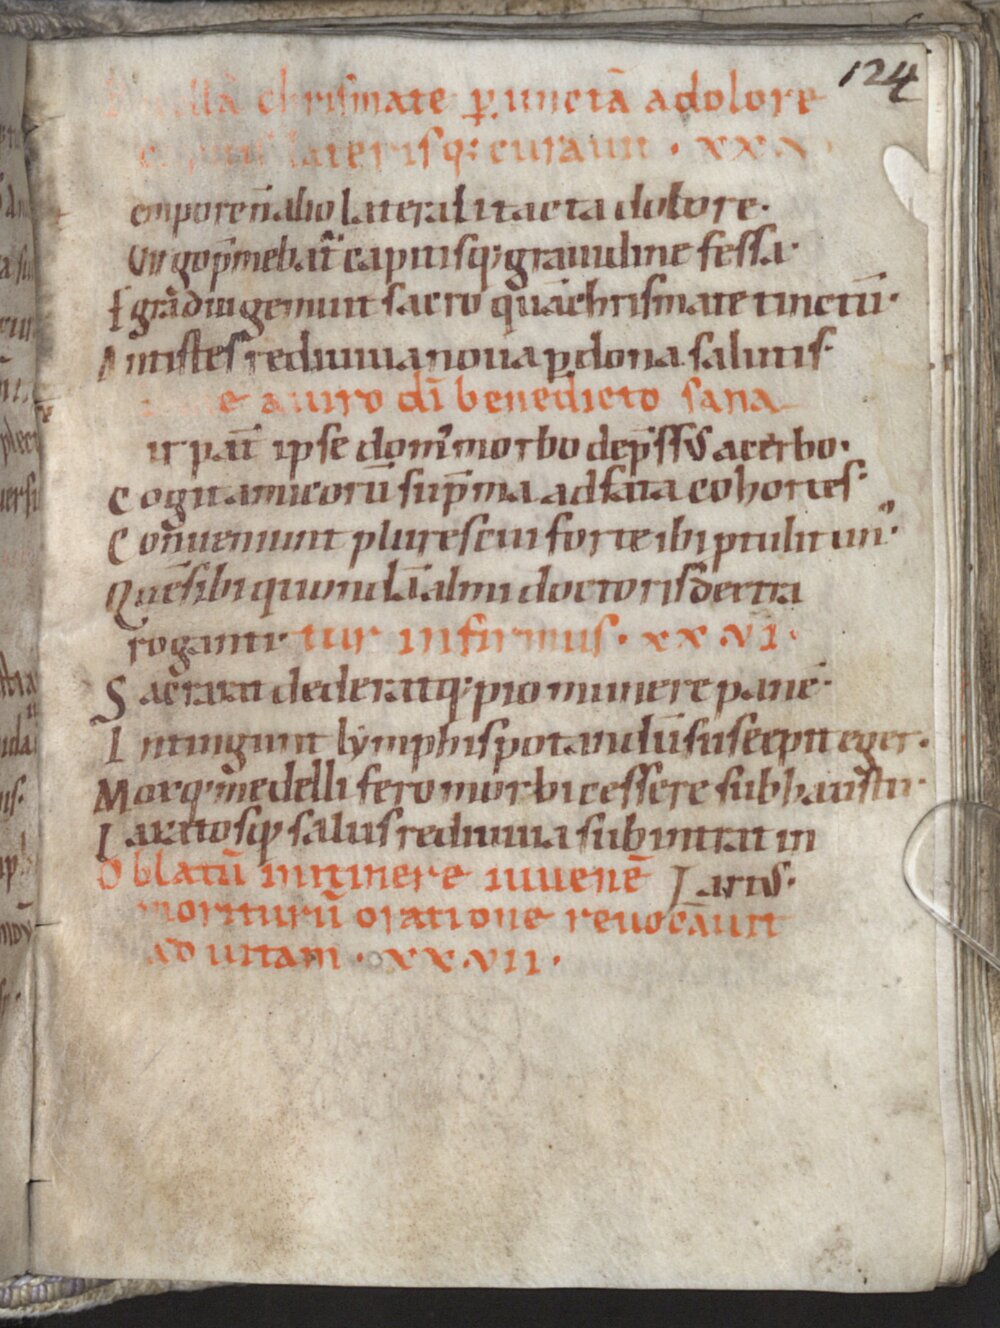 124
chrismate ꝑunctā a dolore
laterisq; curauit · xx
empore n̄ alio laterali tacta dolore·
Virgo p̄mebat᷑ capitisq; grauidine fessa·
Egrā diu gemuit sacro quā chrismate tinctū·
Antistes rediuiua noua ꝑ dona salutis·
e a uiro dī benedicto sana
ir pat͛ ipse dom᷑ morbo dep̄ssus acerbo·
Cogit amicorū sup̄ma ad fata cohortes·
Con̄ueniunt plures cui forte ibi ptulit un᷑·
Quē sibi quondā almi doctoris dextra
rogantē tur infirmus · xx·vi·
Sacrarat dederatq; pio munere panē·
Intingunt lymphis potandū suscepit eger·
Morq; medelliferō morbi cessere sub haustu·
Iaratosq; salus rediuiua subintrat in
Oblatū in itinere iuuenē Jartus·
moriturū oratione reuocauit
ad uitam · xx·vii·